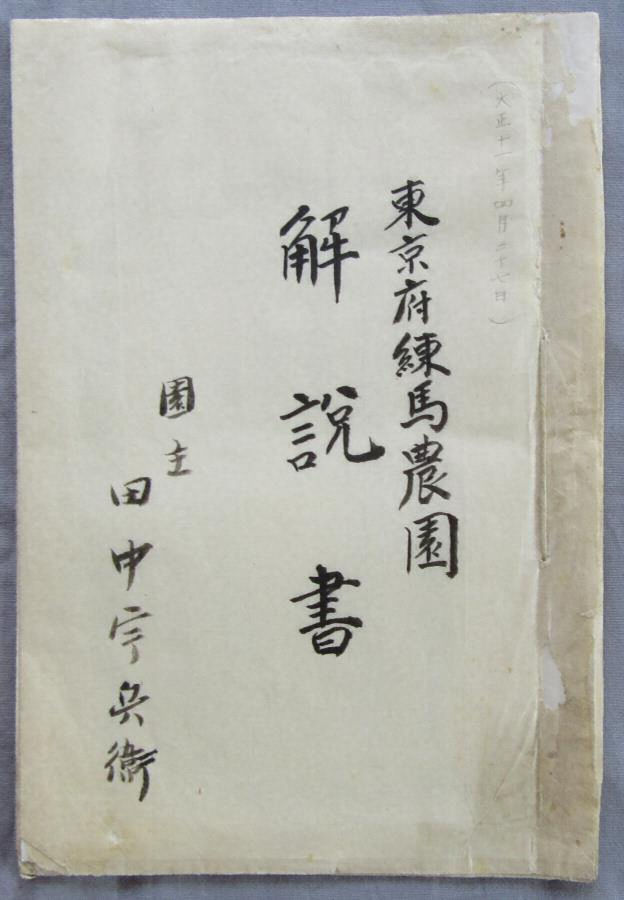 (大正十一年四月二十七日)
東京府練馬農園
解説書
園主
田中宇兵衛